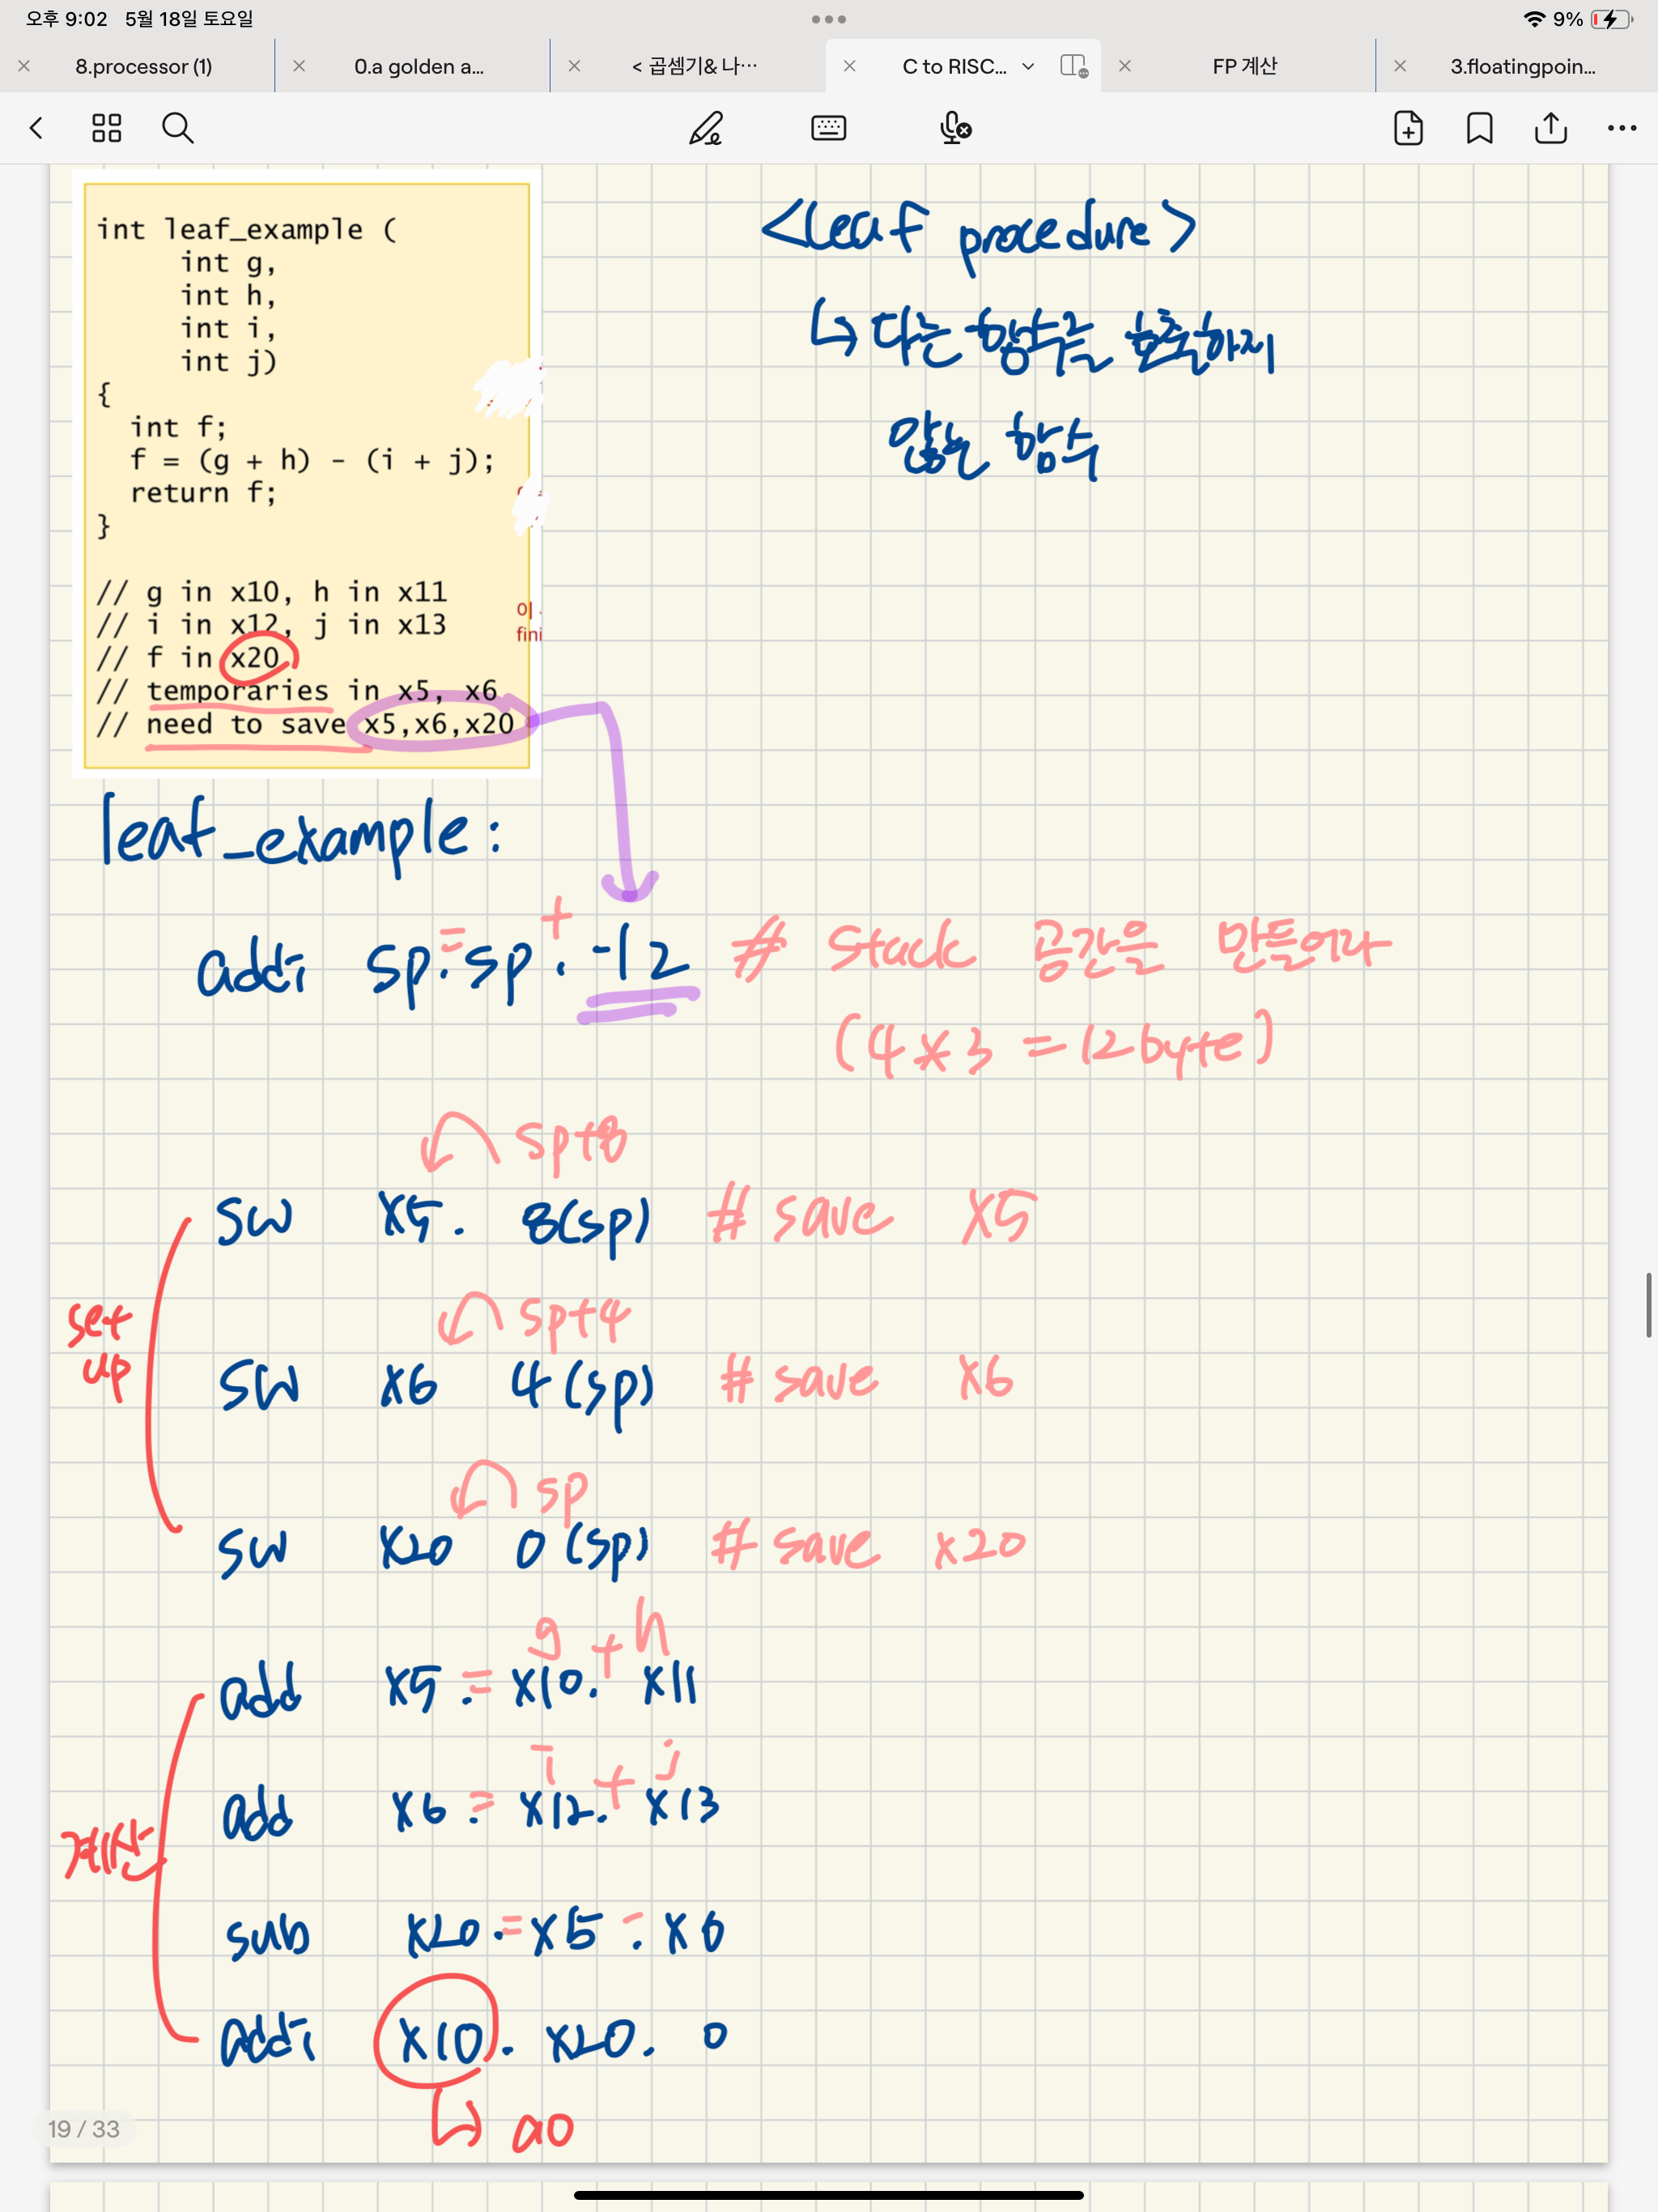 오후 9:02 5월 18일 토요일
9%
8.processor (1)
0.a golden a...
< 곱셈기& 나...
C to RISC...
FP 계산
3.floatingpoin...
int leaf_example (
int g,
int h,
int i,
int j)
{
int f;
f = (g + h) - (i + j);
return f;
}
// g in x10, h in x11
// i in x12, j in x13
// f in x20
// temporaries in x5, x6
// need to save x5,x6,x20
이
fini
<leaf procedure>
↳ 다른 함수를 호출하지
않는 함수
leaf_example:
= +
addi sp, sp, -12 # stack 공간을 만들어라
(4*3 = 12byte)
sp+8
sw x5, 8(sp) # save x5
sp+4
set
up
sw x6 4(sp) # save x6
sp
sw x20 0(sp) # save x20
g + h
add x5, = x10, x11
i + j
add x6, = x12, x13
계산
sub x20, = x5, - x6
addi x10, x20, 0
↳ a0
19 / 33